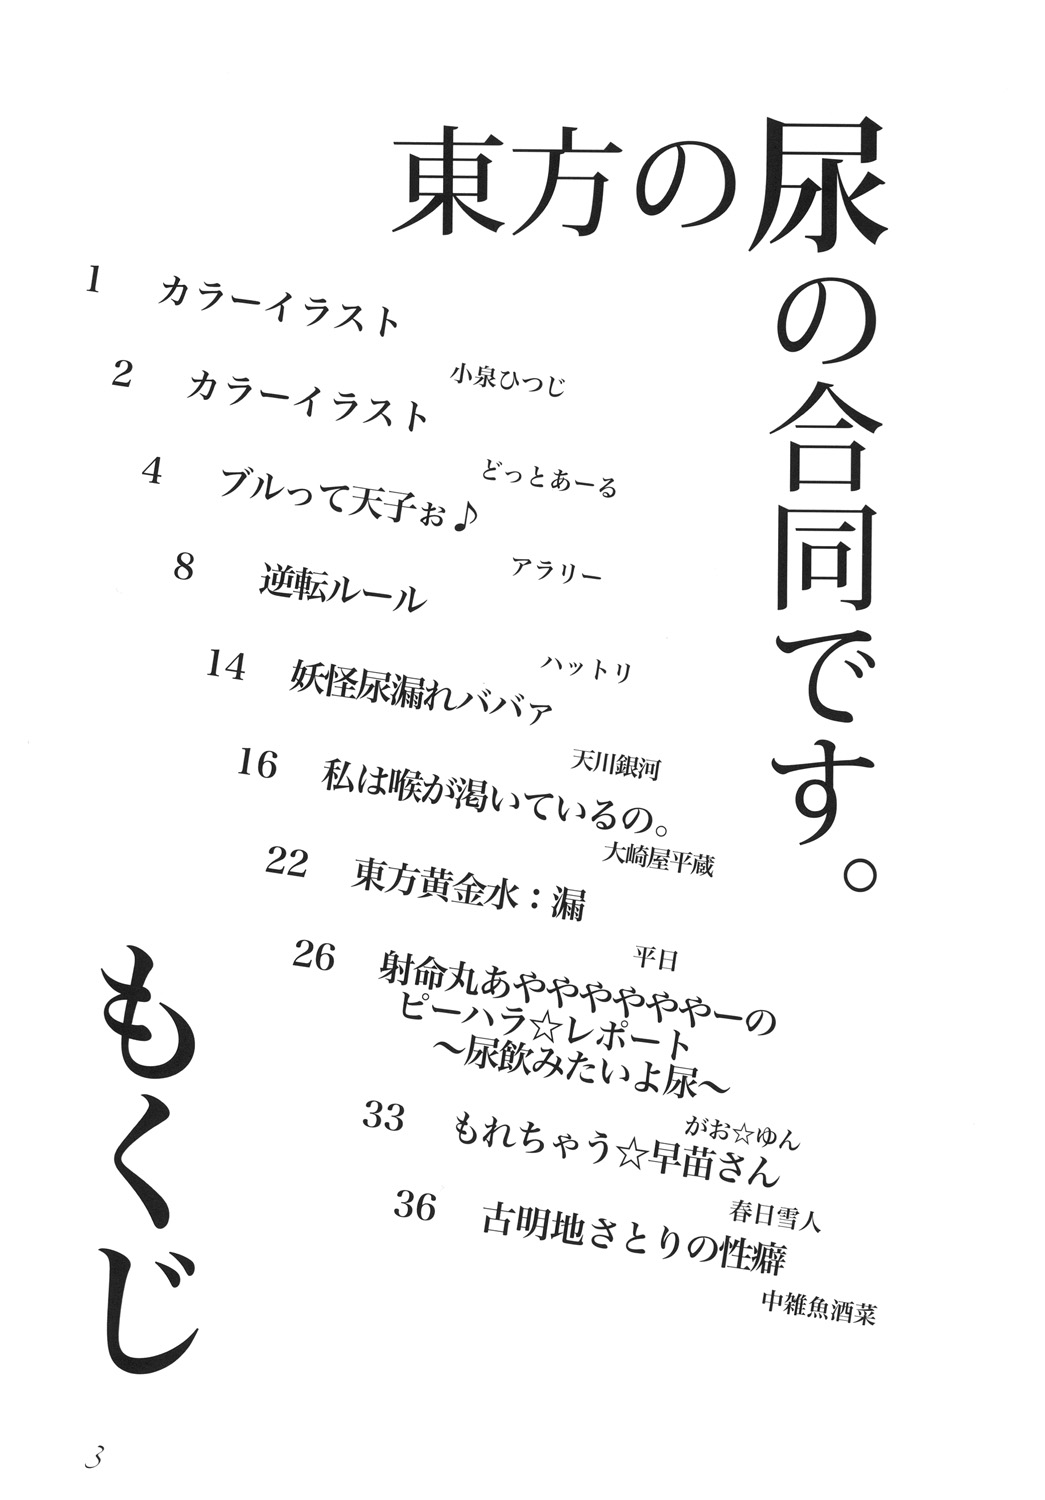 東方の尿の合同です。
1 カラーイラスト
小泉ひつじ
2 カラーイラスト
どっとあーる
4 ブルって天子ぉ♪
アラリー
8 逆転ルール
ハットリ
14 妖怪尿漏れババァ
天川銀河
16 私は喉が渇いているの。
大崎屋平蔵
22 東方黄金水：漏
平日
26 射命丸あややややややーの
ピーハラ☆レポート
～尿飲みたいよ尿～
がお☆ゆん
33 もれちゃう☆早苗さん
春日雪人
36 古明地さとりの性癖
中雑魚酒菜
もくじ
3